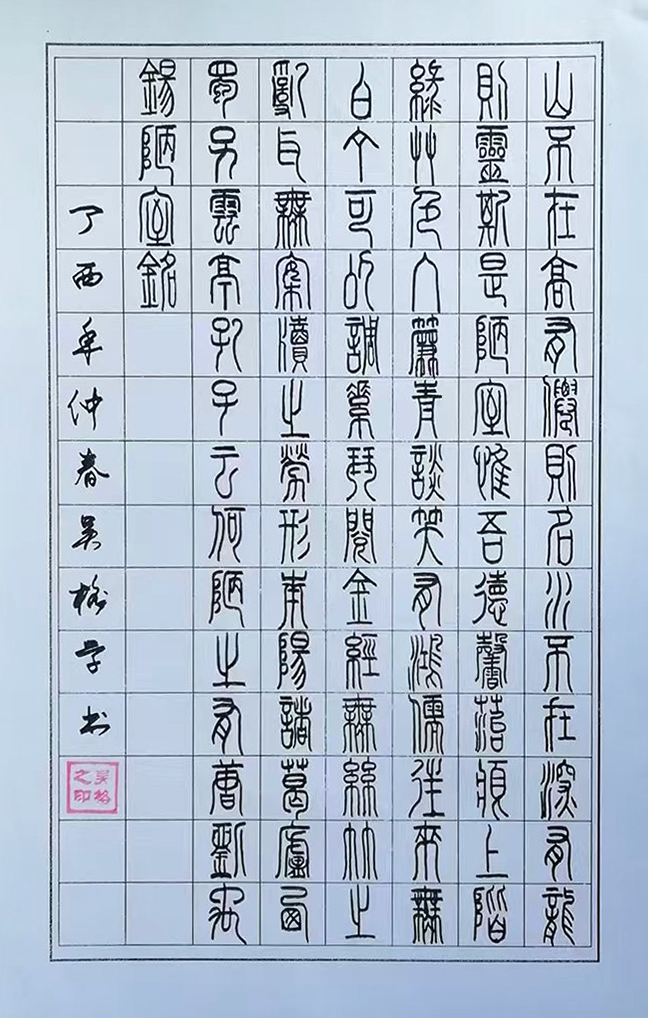 山不在高有僊則名水不在深有龍
則靈斯是陋室惟吾德馨苔痕上階
綠艸色入簾青談笑有鴻儒往來無
白丁可以調素琴閱金經無絲竹之
亂耳無案牘之勞形南陽諸葛廬西
蜀子雲亭孔子云何陋之有唐劉禹
錫陋室銘
丁酉年仲春吳学书
吴之印